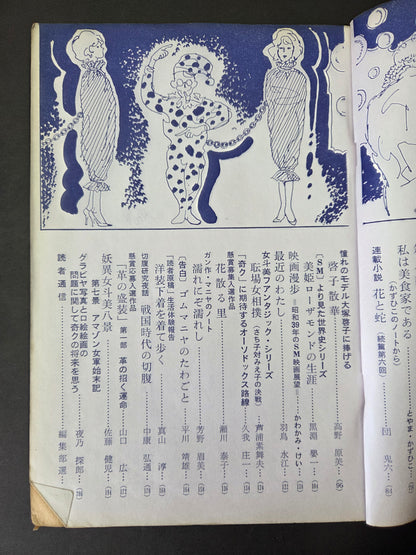 私は美食家である
(かずひこのノートから)
とやま・かずひ
連載小説 花と蛇 (続篇第六回)
団 鬼六
憧れのモデル大塚啓子に捧げる
啓子散華
高野原美
「SM」より見た世界史シリーズ
美姫ローザモンドの生涯
黒淵嬰一
映画漫歩 =昭和39年のSM映画展望=
かわかみ・けい
最近のわたし
羽鳥水江
女斗美ファンタジック・シリーズ
耺場女相撲 (さち子対みえ子の決戦)
芦浦素舞夫
「奇ク」に期待するオーソドックス路線
久我庄一
懸賞募集入選作品
花散る里
瀬川泰子
ガン作・マニヤのノート
濡れに濡れし
芳野眉美
〔告白〕ゴムマニヤのたわごと
平川靖雄
「読者原稿」生活体験報告
洋装下着を着て歩く
真山淳
切腹研究夜話
戦国時代の切腹
中康弘通
懸賞応募入選作品
「革の盛装」 第一部 革の招く運命
山口広
妖異女斗美八景
第七景 アマゾン女軍始末記
佐藤健児
グラビヤ写真と口絵絵画の
問題に関して奇クの将来を思う
夜乃探郎
読者通信
編集部選